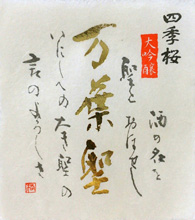 四季桜
大吟醸
酒の名を
聖と
おほせし
万葉聖
いにしへの
大き聖の
言のよろしさ